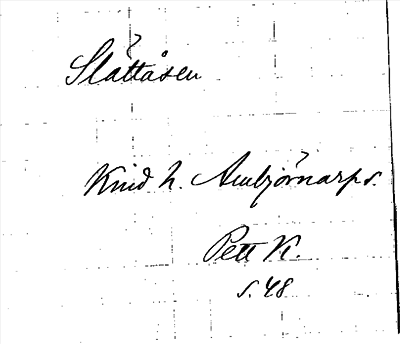 Slättåsen
Kind h. Ambjörnarps s.
Pett K.
s. 48